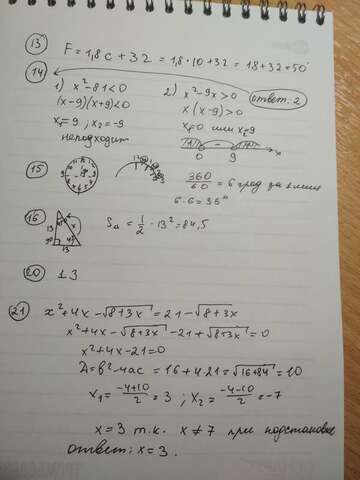 13 F = 1,8c + 32 = 1,8·10+32 = 18+32=50°
14
1) x²-81<0
(x-9)(x+9)<0
x₁=9; x₂=-9
неподходит
2) x²-9x>0
x(x-9)>0
x≠0 или x≠9
0 9 x
ответ: 2
15
360/60 = 6 град за 1 мин
6·6=36°
16 S△ = 1/2 · 13² = 84,5
13 x
90 45
13
20 13
21 x²+4x-√8+3x = 21-√8+3x
x²+4x-√8+3x -21+√8+3x=0
x²+4x-21=0
Д=в²-4ас = 16+4·21=√16+84 = 10
x₁ = -4+10/2 = 3 ; x₂ = -4-10/2 = -7
x=3 т.к. x≠7 при подстановке
ответ: x=3.